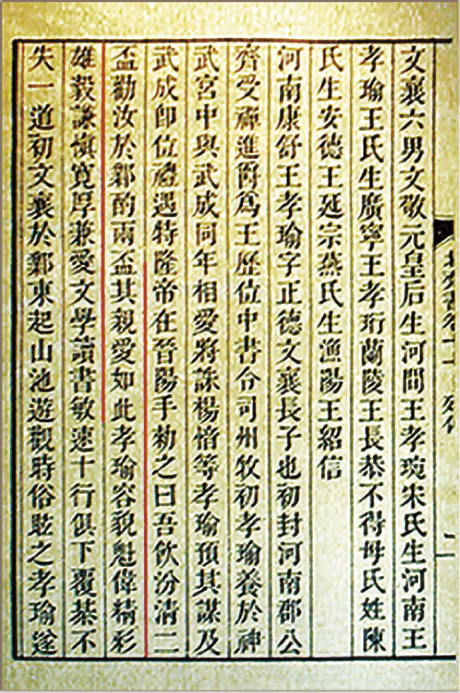 文襄六男文敬元皇后生河間王孝琬宋氏生河南王
孝瑜王氏生廣寧王孝珩蘭陵王長恭不得母氏姓陳
氏生安德王延宗燕氏生漁陽王紹信
河南康舒王孝瑜字正德文襄長子也初封河南郡公
齊受禪進爵爲王歷位中書令司州牧初孝瑜養於神
武宮中與武成同年相愛將誅楊愔等孝瑜預其謀及
武成卽位禮遇特隆帝在晉陽手勑之曰吾飲汾清二
盃勸汝於鄴酌兩盃其親愛如此孝瑜容貌魁偉精彩
雄毅謙慎寬厚兼愛文學讀書敏速十行俱下覆棊不
失一道初文襄於鄴東起山池遊觀時俗眩之孝瑜遂